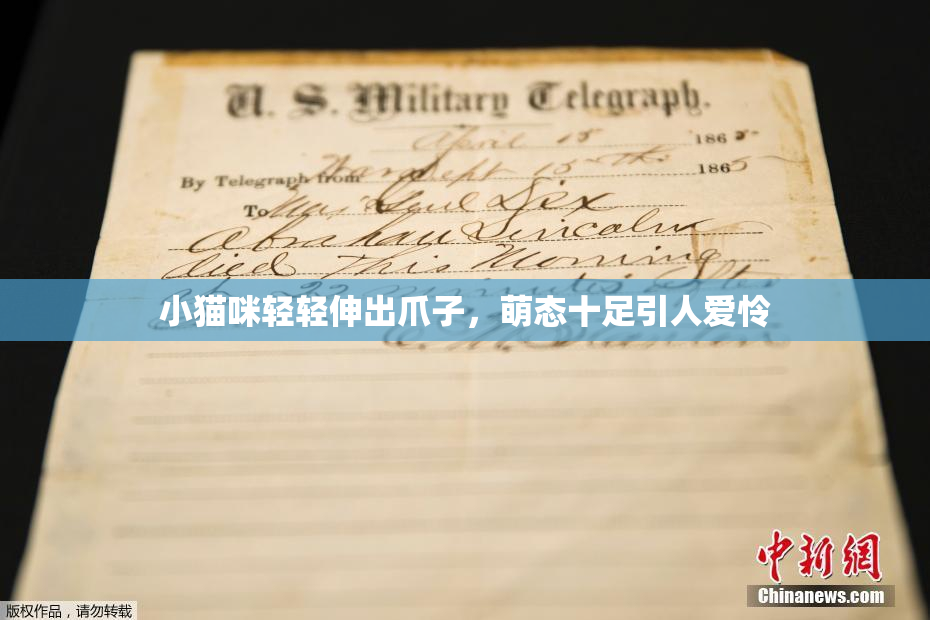 U. S. Military Telegraph.
April 15 1865
By Telegraph from War Dept 15th 1865
To Maj Genl Dix
Abraham Lincoln
died This Morning
at 22 minutes after
小猫咪轻轻伸出爪子，萌态十足引人爱怜
E. M. Stanton
中新网
Chinanews.com
版权作品，请勿转载